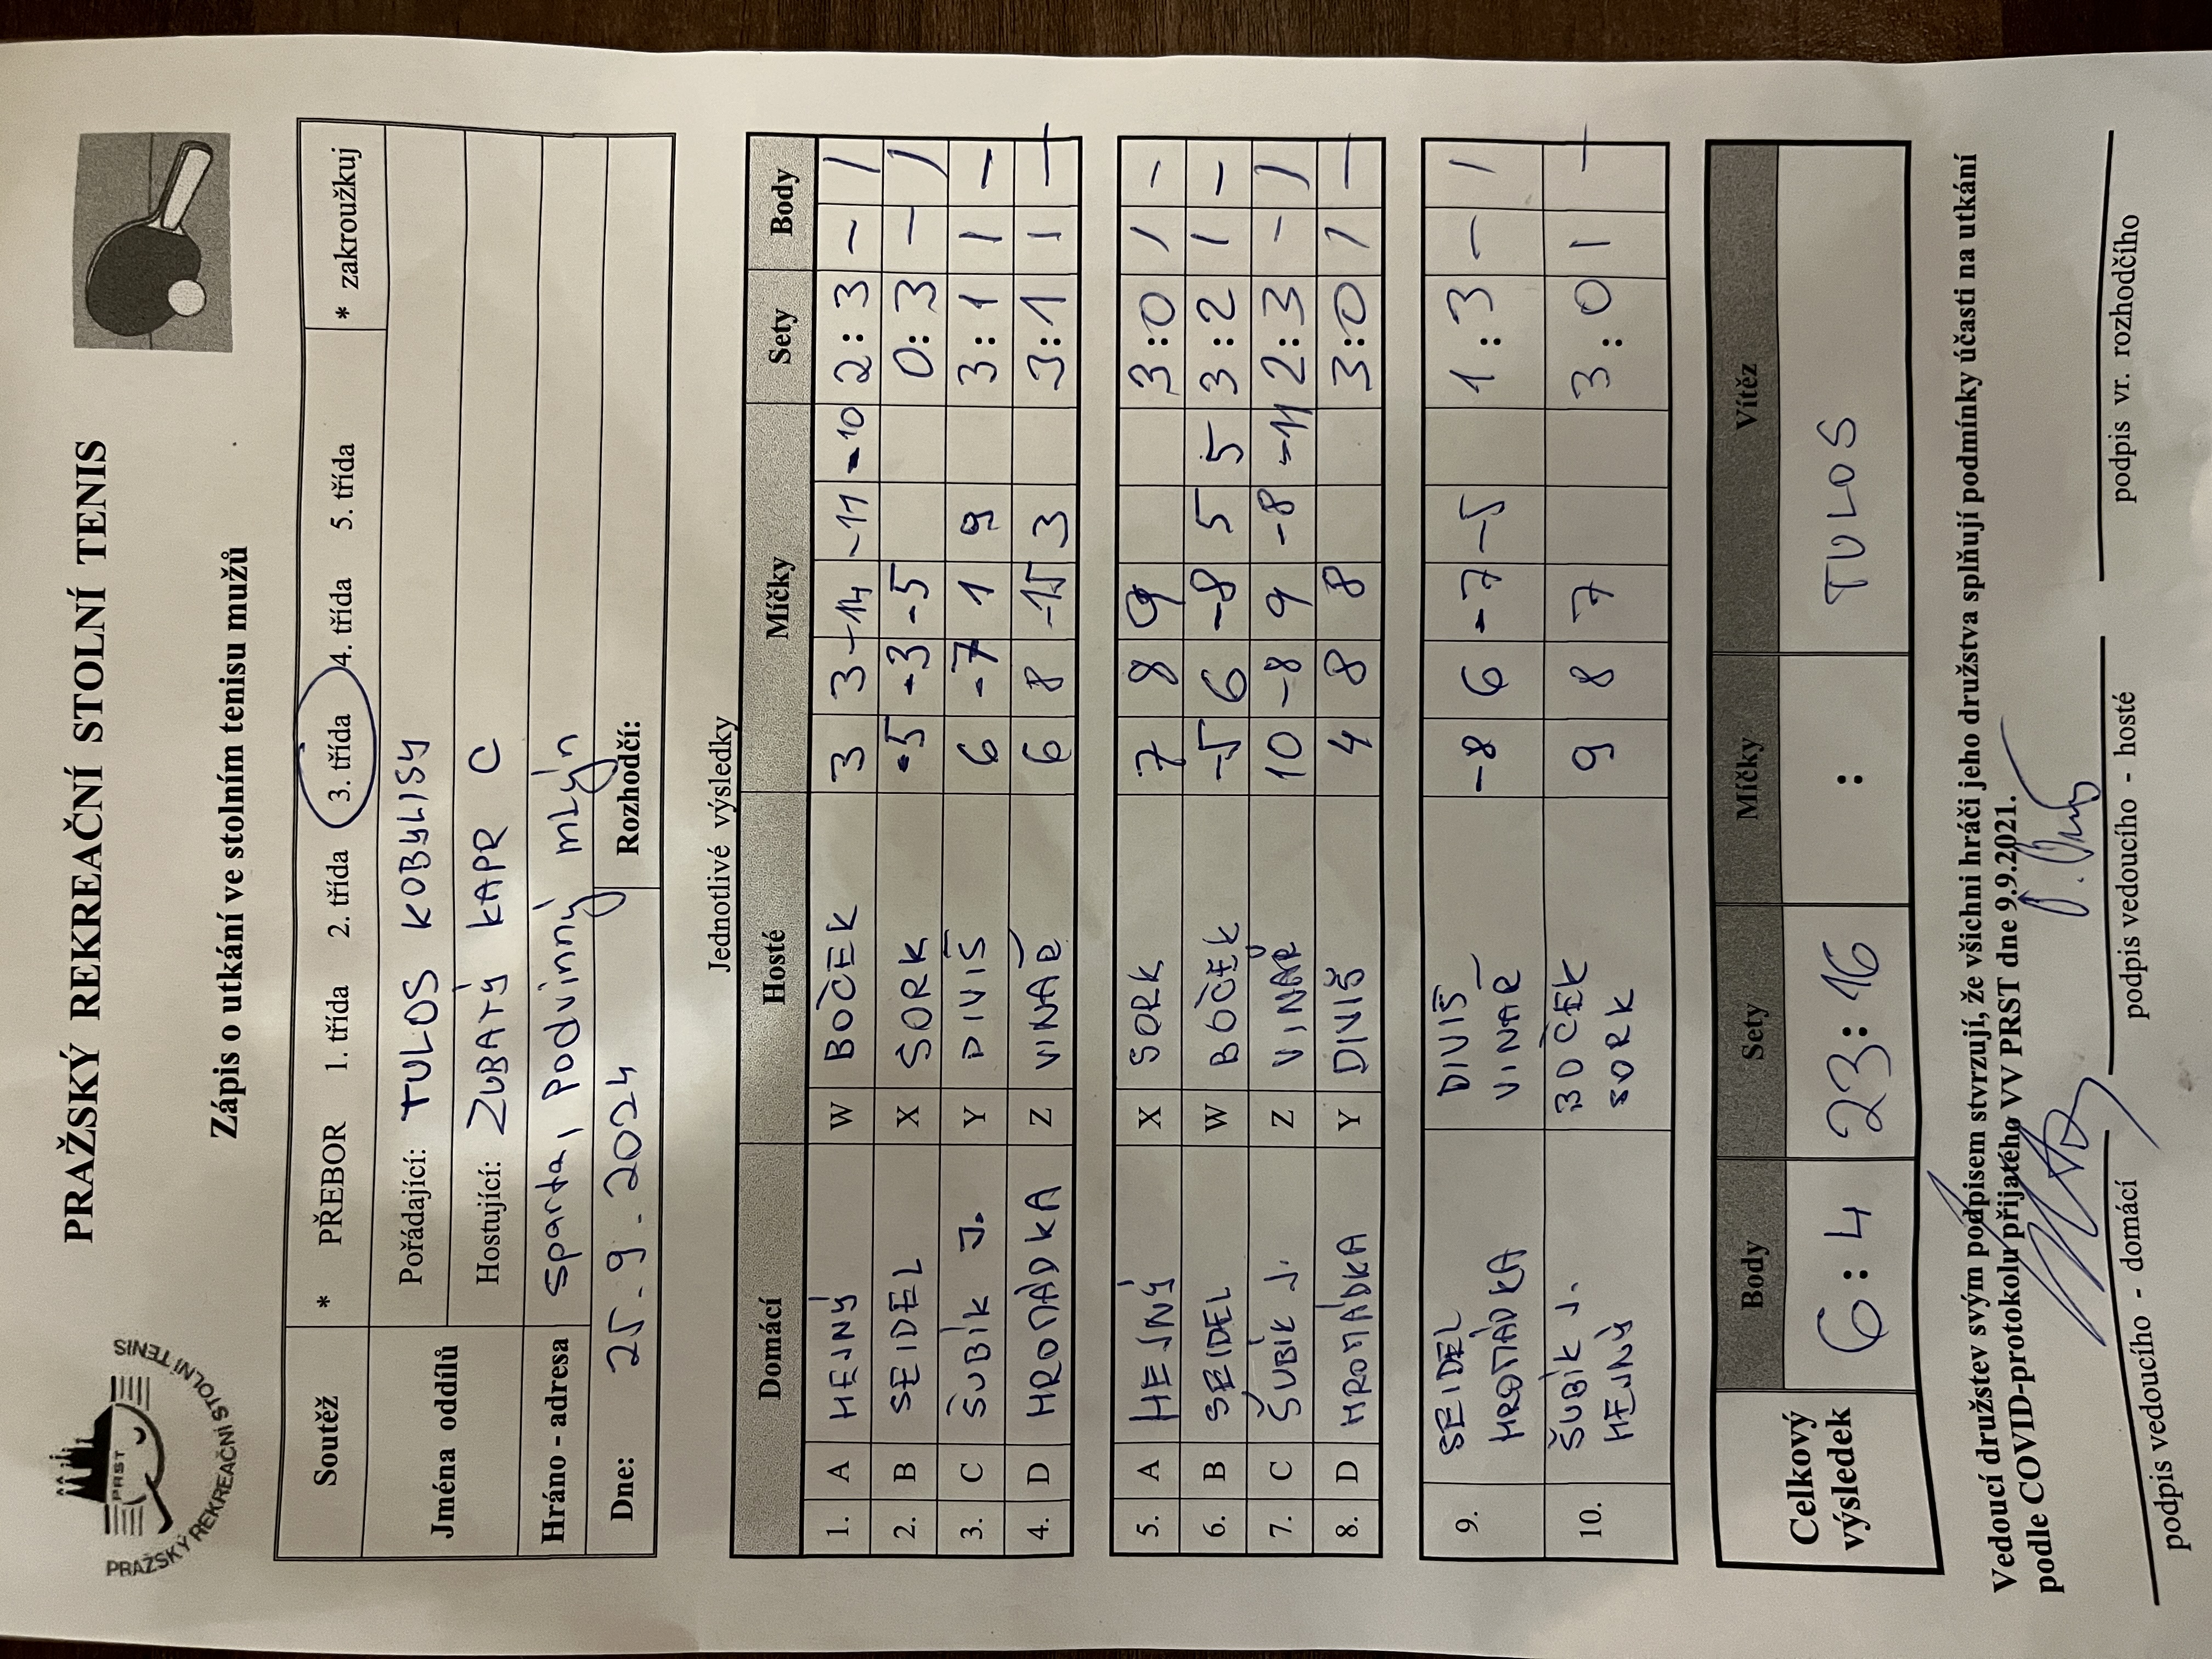 PRAŽSKÝ REKREAČNÍ STOLNÍ TENIS
PRST
PRAŽSKÝ REKREAČNÍ STOLNÍ TENIS
Zápis o utkání ve stolním tenisu mužů
Soutěž * PŘEBOR 1. třída 2. třída 3. třída 4. třída 5. třída * zakroužkuj
Jména oddílů Pořádající: TULOS KOBYLISY
Hostující: ZUBATÝ KAPR C
Hráno - adresa Sparta, Podvinný mlýn
Dne: 25.9.2024 Rozhodčí:
Jednotlivé výsledky
Domácí Hosté Míčky Sety Body
1. A HEJNÝ W BOČEK 3 3 -14 -11 -10 2:3 - 1
2. B SEIDEL X SORK -5 -3 -5 0:3 - 1
3. C ŠUBÍK J. Y DIVIŠ 6 -7 1 9 3:1 1 -
4. D HROMÁDKA Z VINAŘ 6 8 -15 3 3:1 1 -
5. A HEJNÝ X SORK 7 8 9 3:0 1 -
6. B SEIDEL W BOČEK -5 6 -8 5 5 3:2 1 -
7. C ŠUBÍK J. Z VINAŘ 10 -8 9 -8 -11 2:3 - 1
8. D HROMÁDKA Y DIVIŠ 4 8 8 3:0 1 -
9. SEIDEL HROMÁDKA DIVIŠ VINAŘ -8 6 -7 -5 1:3 - 1
10. ŠUBÍK J. HEJNÝ BOČEK SORK 9 8 7 3:0 1 -
Celkový výsledek Body Sety Míčky Vítěz
6:4 23:16 : TULOS
Vedoucí družstev svým podpisem stvrzují, že všichni hráči jeho družstva splňují podmínky účasti na utkání
podle COVID-protokolu přijatého VV PRST dne 9.9.2021.
podpis vedoucího - domácí podpis vedoucího - hosté podpis vr. rozhodčího